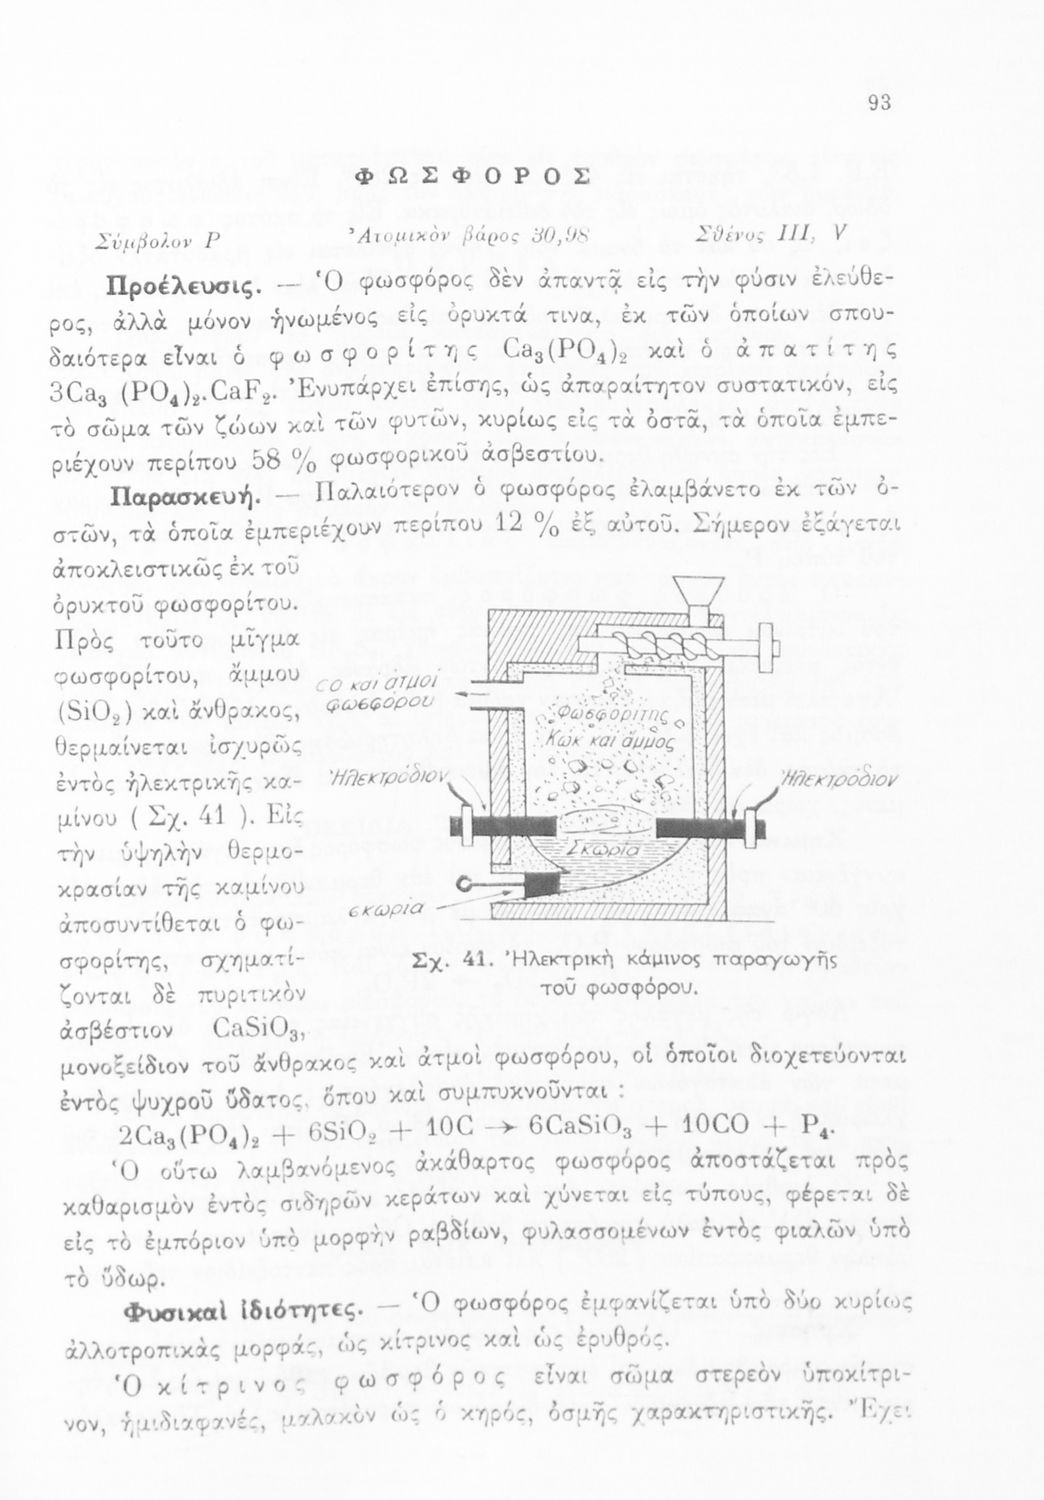 93
ΦΩΣΦΟΡΟΣ
Σύμβολον P Ἀτομικὸν βάρος 30,98 Σθένος III, V
Προέλευσις. — Ὁ φωσφόρος δὲν ἀπαντᾷ εἰς τὴν φύσιν ἐλεύθε-
ρος, ἀλλὰ μόνον ἡνωμένος εἰς ὀρυκτά τινα, ἐκ τῶν ὁποίων σπου-
δαιότερα εἶναι ὁ φωσφορίτης Ca₃(PO₄)₂ καὶ ὁ ἀπατίτης
3Ca₃ (PO₄)₂.CaF₂. Ἐνυπάρχει ἐπίσης, ὡς ἀπαραίτητον συστατικόν, εἰς
τὸ σῶμα τῶν ζώων καὶ τῶν φυτῶν, κυρίως εἰς τὰ ὀστᾶ, τὰ ὁποῖα ἐμπε-
ριέχουν περίπου 58 % φωσφορικοῦ ἀσβεστίου.
Παρασκευή. — Παλαιότερον ὁ φωσφόρος ἐλαμβάνετο ἐκ τῶν ὀ-
στῶν, τὰ ὁποῖα ἐμπεριέχουν περίπου 12 % ἐξ αὐτοῦ. Σήμερον ἐξάγεται
ἀποκλειστικῶς ἐκ τοῦ
ὀρυκτοῦ φωσφορίτου.
Πρὸς τοῦτο μῖγμα
φωσφορίτου, ἄμμου
(SiO₂) καὶ ἄνθρακος,
θερμαίνεται ἰσχυρῶς
ἐντὸς ἠλεκτρικῆς κα-
μίνου ( Σχ. 41 ). Εἰς
τὴν ὑψηλὴν θερμο-
κρασίαν τῆς καμίνου
ἀποσυντίθεται ὁ φω-
σφορίτης, σχηματί-
ζονται δὲ πυριτικὸν
ἀσβέστιον CaSiO₃,
CO και ατμοί
φωσφόρου
Φωσφορίτης
Κώκ και άμμος
Ἠλεκτρόδιον
Ἠλεκτρόδιον
Σκωρία
σκωρία
Σχ. 41. Ἠλεκτρικὴ κάμινος παραγωγῆς
τοῦ φωσφόρου.
μονοξείδιον τοῦ ἄνθρακος καὶ ἀτμοὶ φωσφόρου, οἱ ὁποῖοι διοχετεύονται
ἐντὸς ψυχροῦ ὕδατος, ὅπου καὶ συμπυκνοῦνται :
2Ca₃(PO₄)₂ + 6SiO₂ + 10C → 6CaSiO₃ + 10CO + P₄.
Ὁ οὕτω λαμβανόμενος ἀκάθαρτος φωσφόρος ἀποστάζεται πρὸς
καθαρισμὸν ἐντὸς σιδηρῶν κεράτων καὶ χύνεται εἰς τύπους, φέρεται δὲ
εἰς τὸ ἐμπόριον ὑπὸ μορφὴν ραβδίων, φυλασσομένων ἐντὸς φιαλῶν ὑπὸ
τὸ ὕδωρ.
Φυσικαὶ ἰδιότητες. — Ὁ φωσφόρος ἐμφανίζεται ὑπὸ δύο κυρίως
ἀλλοτροπικὰς μορφάς, ὡς κίτρινος καὶ ὡς ἐρυθρός.
Ὁ κίτρινος φωσφόρος εἶναι σῶμα στερεὸν ὑποκίτρι-
νον, ἡμιδιαφανές, μαλακὸν ὡς ὁ κηρός, ὀσμῆς χαρακτηριστικῆς. Ἔχει